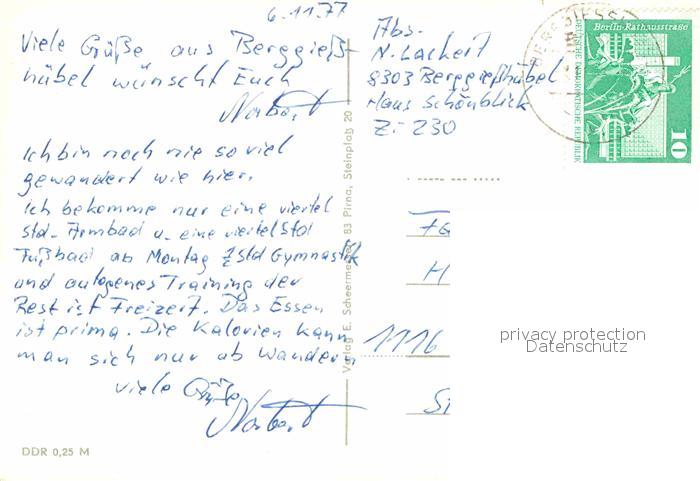 6.11.77
Viele Grüße aus Berggieß-
hübel wünscht Euch
Norbert
Ich bin noch nie so viel
gewandert wie hier.
Ich bekomme nur eine viertel
Std. Armbad u. eine viertel Std
Fußbad ab Montag ½ Std Gymnastik
und autogenes Training der
Rest ist Freizeit. Das Essen
ist prima. Die Kalorien kann
man sich nur ab wandern
viele Grüße
Norbert
DDR 0,25 M
Verlag E. Scheermesser, 83 Pirna, Steinplatz 20
Abs.
N. Lachert
8303 Berggießhübel
Haus Schönblick
Zi 230
Fa
H
1116
St
Berlin-Rathausstraße
DEUTSCHE DEMOKRATISCHE REPUBLIK
10
privacy protection
Datenschutz